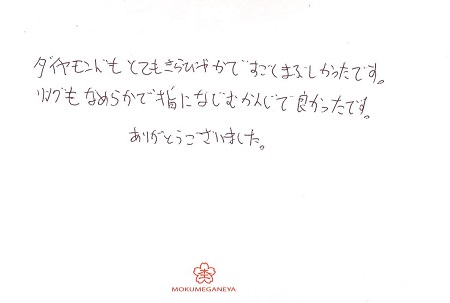 ダイヤモンドもとてもきらびやかですごくまぶしかったです。
リングもなめらかで指になじむかんじで良かったです。
ありがとうございました。
MOKUMEGANEYA